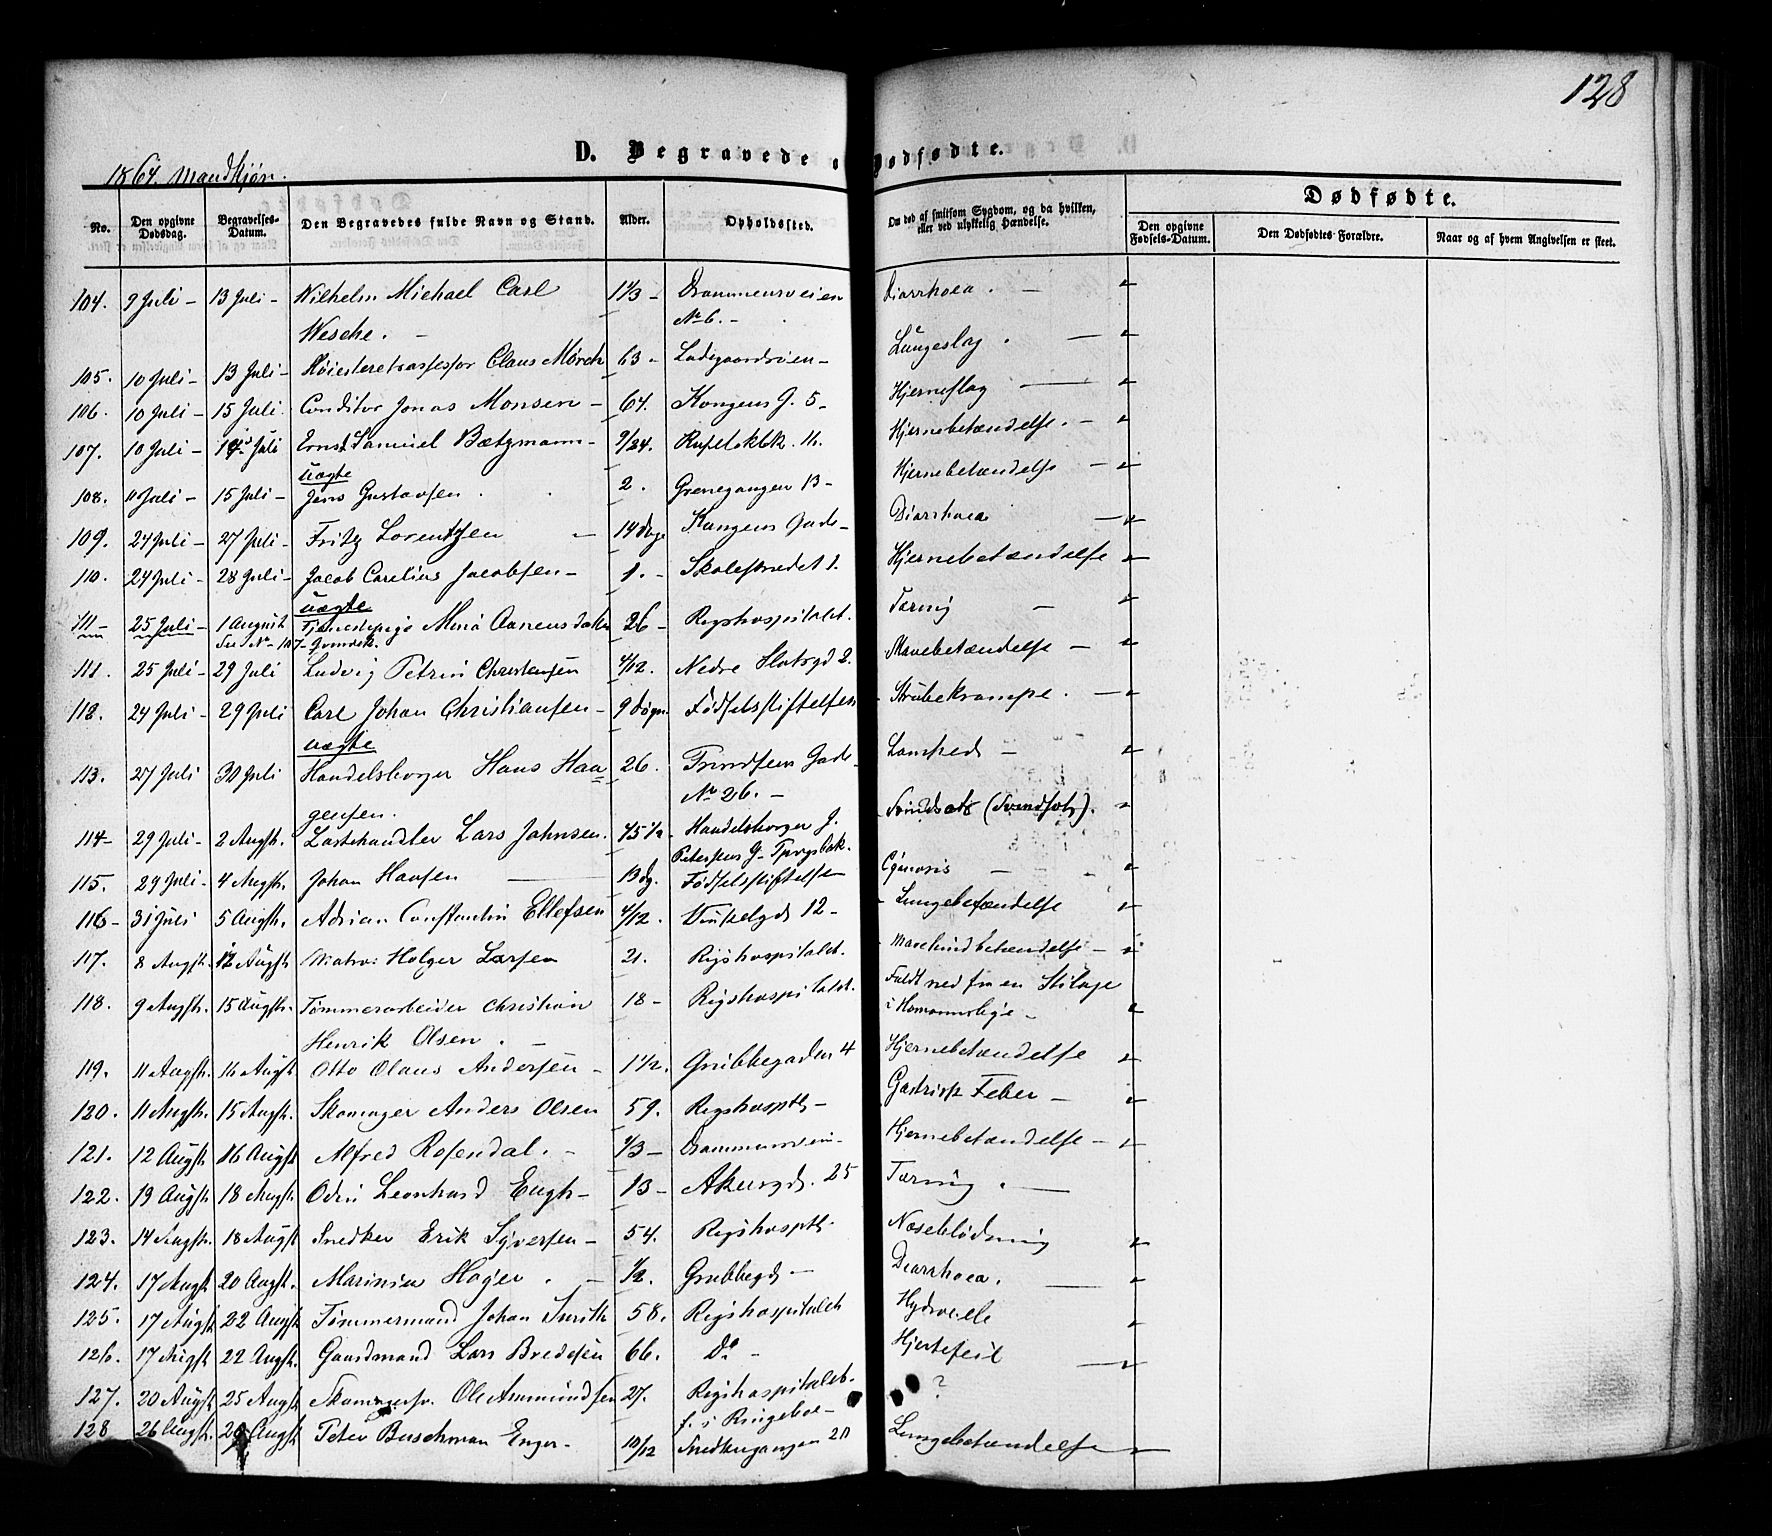 128
D. Begravede o Dødfødte.
1864. Mandkjøn.
No. Den opgivne Dødsdag. Begravelses-Datum. Den Begravedes fulde Navn og Stand. Alder. Opholdssted. Om død af smitsom Sygdom, og da hvilken, eller ved ulykkelig Hændelse. Dødfødte.
Den opgivne Fødsels-Datum. Den Dødfødtes Forældre. Naar og af hvem Angivelsen er skeet.
104. 9 Juli - 13 Juli - Wilhelm Michael Carl 1 1/3 - Drammensveien Diarrhoea. -
Wesche. - No 6. -
105. 10 Juli - 13 Juli - Høiesteretsassessor Claus Mørch 63 - Ladegaardsøen - Lungeslag. -
106. 10 Juli - 15 Juli. Conditor Jonas Monsen - 64. Kongens G. 5 - Hjerneslag -
107. 10 Juli - 14 Juli Ernst Samuel Bætzmann - 9/24. 16. Hjernebetændelse. -
uægte
108. 11 Juli - 15 Juli - Jens Gustavsen. 2. Grønnegangen 13 - Hjernebetændelse -
109. 24 Juli - 27 Juli - Fritz Lorentzen - 14 dge Kongens Gade - Diarrhoea -
110. 24 Juli - 28 Juli - Jacob Carelius Jacobsen - 1. - Skolestrædet 1. Hjernebetændelse
uægte
111 - 25 Juli - 1 August Tjenestepige Mina 26 - Rigshospitalet. Tæring -
See No 107 - Qvindek.
111. 25 Juli - 29 Juli Ludvig Petrin Christensen 4/12. Nedre Slotsgd 2. Mavebetændelse -
112. 24 Juli - 29 Juli Carl Johan Christiansen - 9 døgn. Fødselsstiftelsen - Strubekrampe. -
uægte
113. 27 Juli 30 Juli Handelsborger Hans Haa 26. Gade - -
gensen. No 26. -
114 - 29 Juli - 2 Augst. Lastehandler Lars Johnsen. 45 1/2 - Handelsborger J. (Svindsot).
Petersens G -
115. 29 Juli - 4 Augst. Johan Hansen - 13 dg. Fødselsstiftelse - Cyanosis -
116 - 31 Juli 5 Augst. Adrian Constantin Ellefsen 4/12. Vinkelgd 12 - - Lungebetændelse
117. 8 Augst. 12 Augst Matros Holger Larsen 21. Rigshospitalet. - Mavehindebetændelse -
118. 9 Augst. 15 Augst. Tømmerarbeider Christian 18 - Rigshospitalet. Faldt ned fra en Stilage
Henrik Olsen. - i
119. 11 Augst. 16 Augst Otto Olaus Andersen - 1 1/2. Grubbegaden 4 Hjernebetændelse
120. 11 Augst. 15 Augst. Skomager Anders Olsen 59. Rigshosptl - Gastrisk Feber -
121. 12 Augst 16 Augst Alfred Rosendal. - 1/3 - Drammensvein - Hjernebetændelse -
122. 19 Augst 18 Augst. Odin Leonhard Engh - 13 - Akersgd. 25 Tæring. -
123. 14 Augst. 18 Augst Snedker Erik Syversen - 54. Rigshosptl. Næseblødning
124. 17 Augst 20 Augst. Marinius Høyer. - 1/2. Grubbegd - Diarrhoea. -
125. 17 Augst 22 Augst Tømmermand Johan Smith 58. Rigshospitalet
126. 17 Augst 22 Augst. Gaardmand Lars Bredesen 66. Do - Hjertefeil -
127. 20 Augst 25 Augst Skomagersv. Ole Ammundsen 27. Rigshospitalet. ?
f. i Ringeboe -
128 26 Augst. 29 Augst Peter Buschman Enger - 10/12 Snedkergangen 2 Lungebetændelse